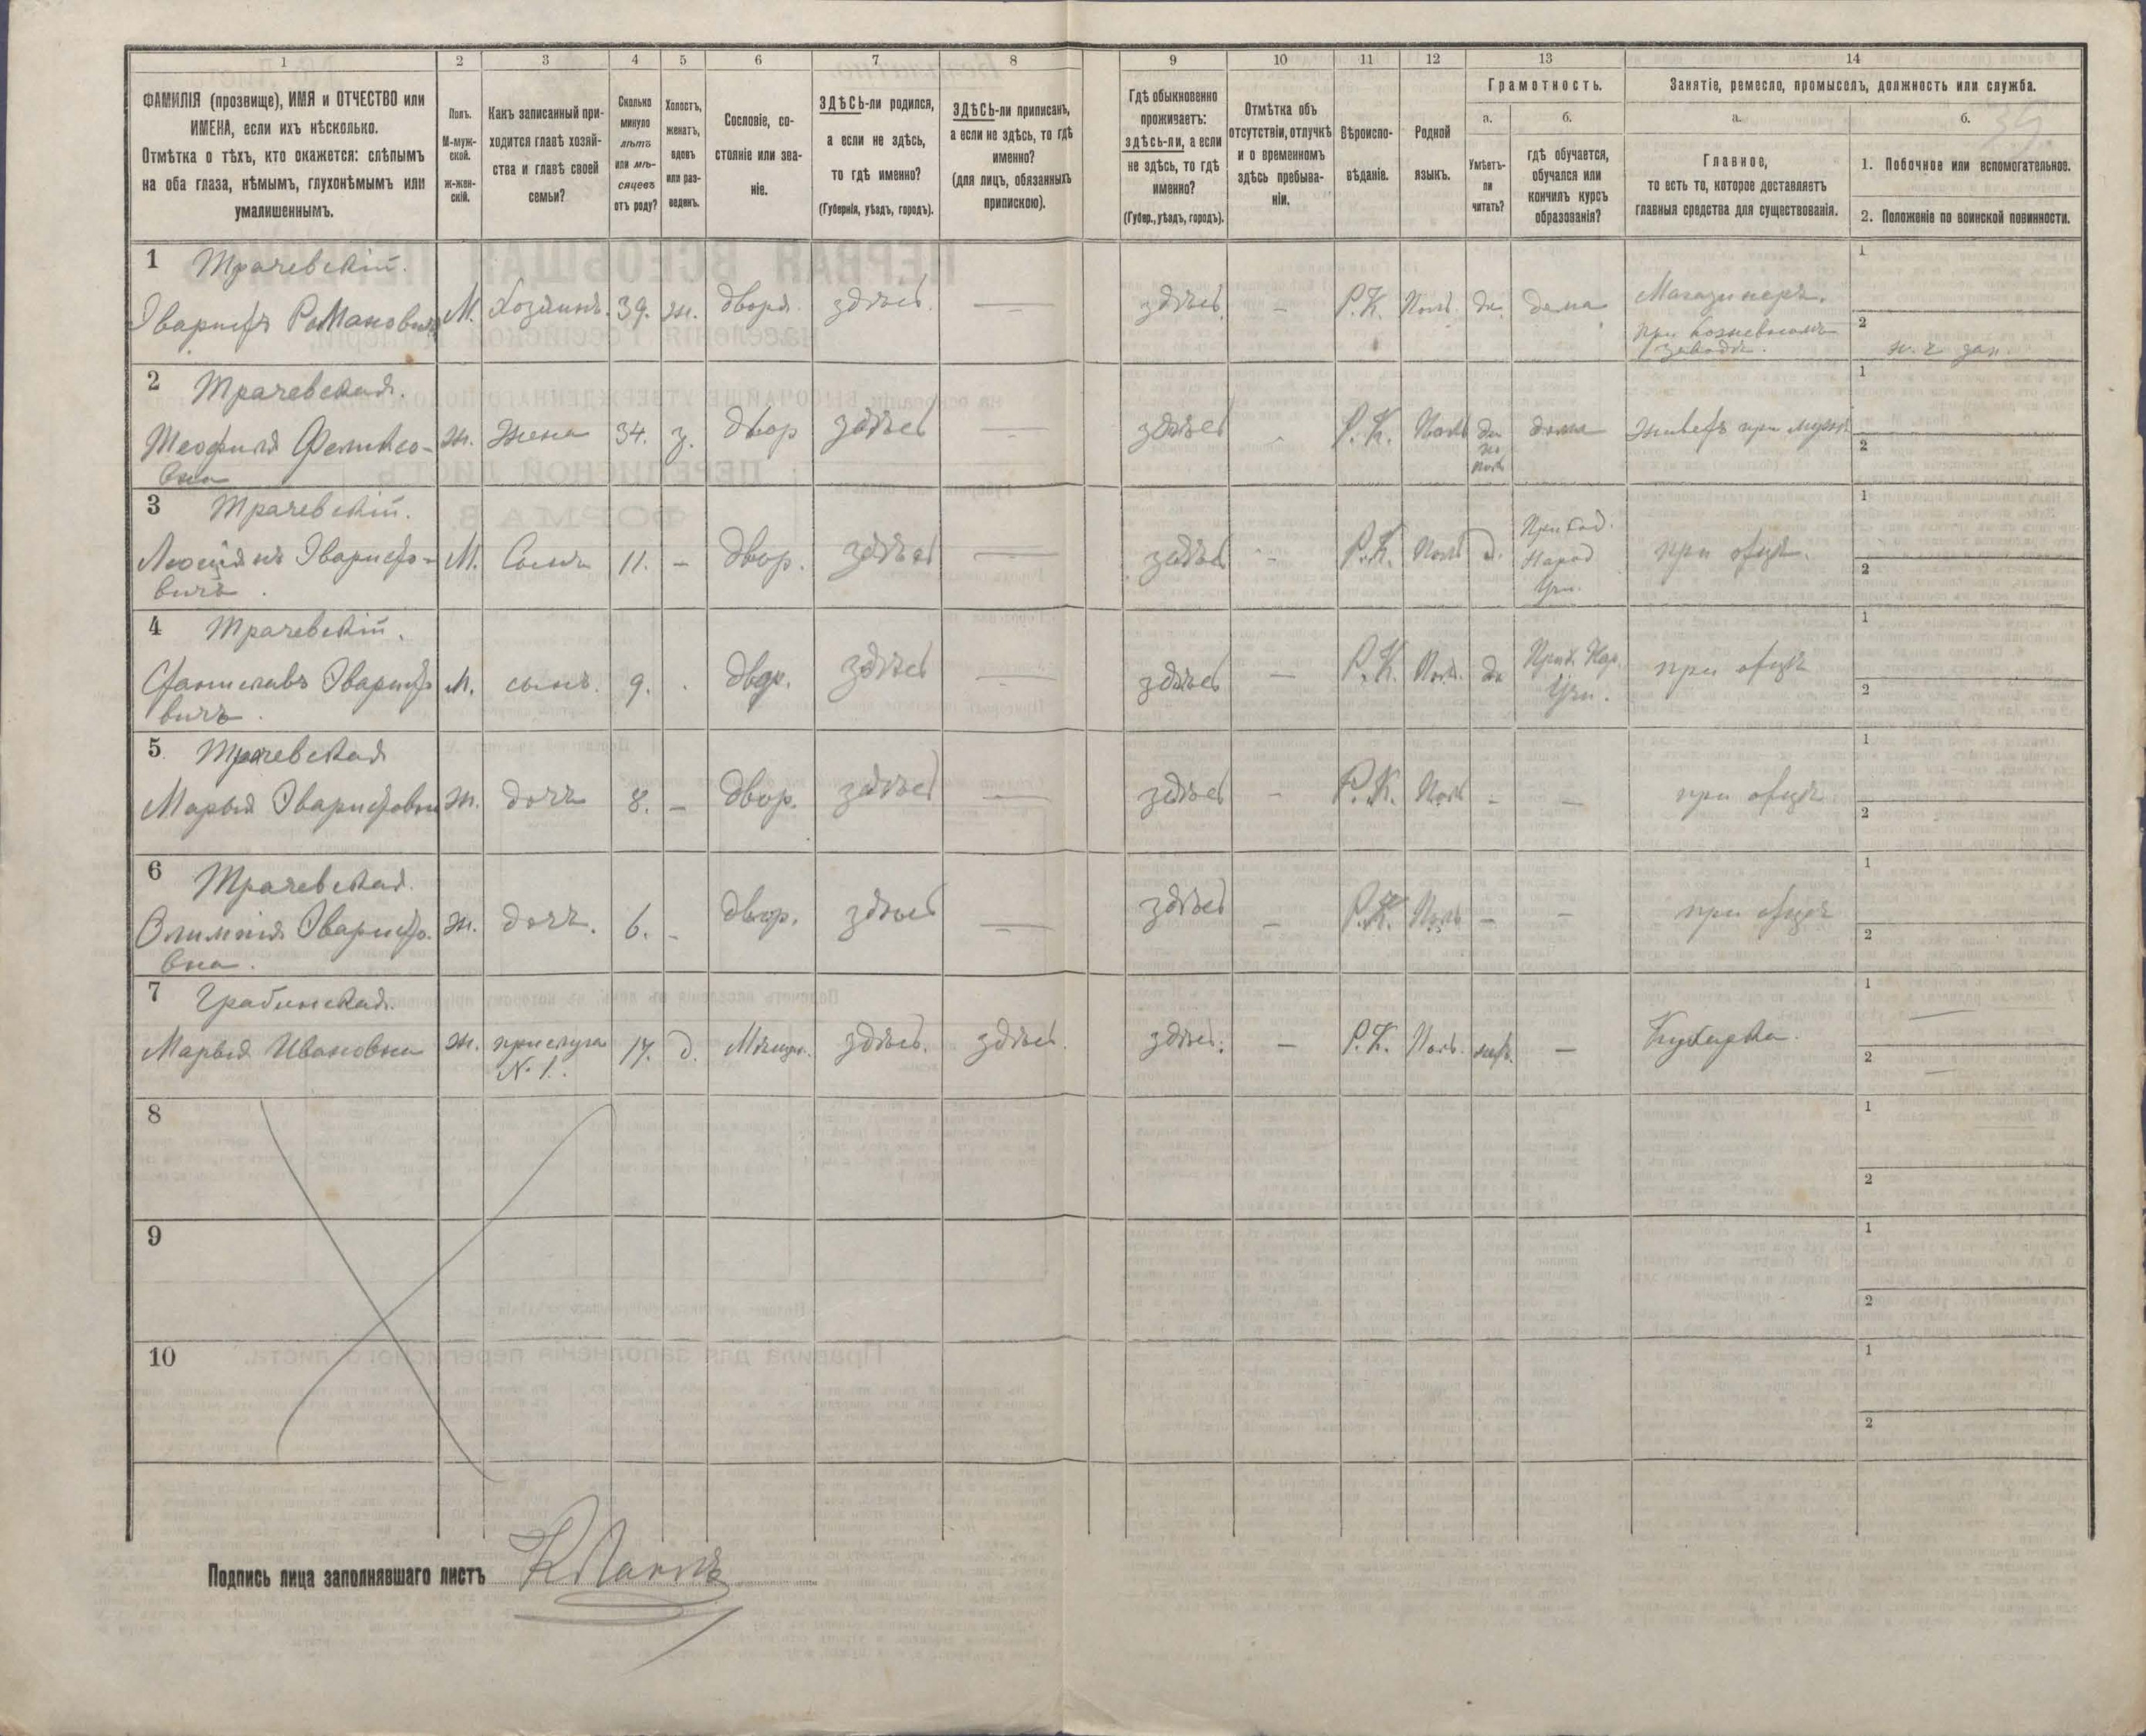 1 2 3 4 5 6 7 8 9 10 11 12 13 14
ФАМИЛІЯ (прозвище), ИМЯ и ОТЧЕСТВО или
ИМЕНА, если ихъ нѣсколько.
Отмѣтка о тѣхъ, кто окажется: слѣпымъ
на оба глаза, нѣмымъ, глухонѣмымъ или
умалишеннымъ.
Полъ.
М-муж-
ской.
Ж-жен-
скій.
Какъ записанный при-
ходится главѣ хозяй-
ства и главѣ своей
семьи?
Сколько
минуло
лѣтъ
или мѣ-
сяцевъ
отъ роду?
Холостъ,
женатъ,
вдовъ
или раз-
веденъ.
Сословіе, со-
стояніе или зва-
ніе.
ЗДѢСЬ-ли родился,
а если не здѣсь,
то гдѣ именно?
(Губернія, уѣздъ, городъ).
ЗДѢСЬ-ли приписанъ,
а если не здѣсь, то гдѣ
именно?
(для лицъ, обязанныхъ
припискою).
Гдѣ обыкновенно
проживаетъ:
здѣсь-ли, а если
не здѣсь, то гдѣ
именно?
(Губер., уѣздъ, городъ).
Отмѣтка объ
отсутствіи, отлучкѣ
и о временномъ
здѣсь пребыва-
ніи.
Вѣроиспо-
вѣданіе.
Родной
языкъ.
Грамотность.
а.
Умѣетъ-
ли
читать?
б.
гдѣ обучается,
обучался или
кончилъ курсъ
образованія?
Занятіе, ремесло, промыселъ, должность или служба.
а.
Главное,
то есть то, которое доставляетъ
главныя средства для существованія.
б.
1. Побочное или вспомогательное.
2. Положеніе по воинской повинности.
1 Трачевскій. 1
Эваристъ Романовичъ М. Хозяинъ. 39. ж. дворя. здѣсь. — здѣсь. — Р.К. Поль. да дома Магазинеръ.
при заводѣ. 2
2 Трачевская. 1
Теофиля Феликсо- ж. жена 34. з. двор здѣсь — здѣсь - Р.К. Поль да дома живетъ при мужѣ
вна по поль 2
3 Трачевскій. 1
Люціянъ Эваристо- М. Сынъ 11. - двор. здѣсь — здѣсь - Р.К. Поль д. Народ Учи. при отцѣ.
вичъ. 2
4 Трачевскій. 1
Станиславъ Эваристо М. сынъ. 9. . двор. здѣсь — здѣсь — Р.К. Поль. да Прих. Нар. Учи. при отцѣ
вичъ. 2
5 Трачевская 1
Марья Эваристовна ж. дочь 8. — двор. здѣсь — здѣсь - Р.К. Поль - — при отцѣ
2
6 Трачевская. 1
Олимпія Эваристо. ж. дочь. 6. - двор. здѣсь — здѣсь — Р.К. Поль — — при отцѣ
вна. 2
7 Грабинская. 1 —
Марья Ивановна ж. прислуга 17. д. Мѣщан. здѣсь. здѣсь. здѣсь. — Р.К. Поль. нѣтъ. — Кухарка.
№ 1. 2 —
8 1
2
9 1
2
10 1
2
Подпись лица заполнявшаго листъ